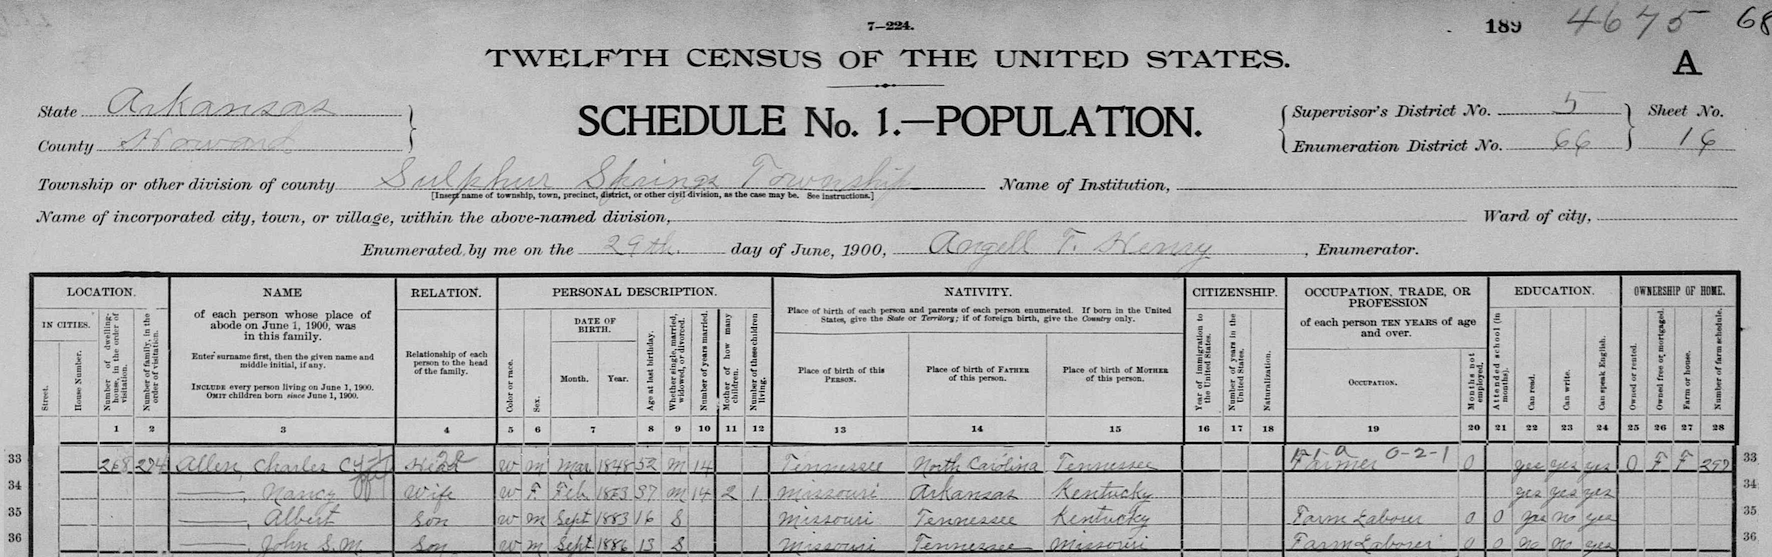 7—224.
189 4675 68
TWELFTH CENSUS OF THE UNITED STATES.
A
State Arkansas
County Howard
SCHEDULE No. 1.—POPULATION.
Supervisor's District No. 5 Sheet No.
Enumeration District No. 66 16
Township or other division of county Sulphur Springs Township Name of Institution,
[Insert name of township, town, precinct, district, or other civil division, as the case may be. See instructions.]
Name of incorporated city, town, or village, within the above-named division, Ward of city,
Enumerated by me on the 29th. day of June, 1900, Angell T. Henry, Enumerator.
LOCATION.
IN CITIES.
Street.
House Number.
Number of dwelling-house, in the order of visitation.
Number of family, in the order of visitation.
NAME
of each person whose place of
abode on June 1, 1900, was
in this family.
Enter surname first, then the given name and
middle initial, if any.
INCLUDE every person living on June 1, 1900.
OMIT children born since June 1, 1900.
RELATION.
Relationship of each
person to the head
of the family.
PERSONAL DESCRIPTION.
Color or race.
Sex.
DATE OF
BIRTH.
Month.
Year.
Age at last birthday.
Whether single, married, widowed, or divorced.
Number of years married.
Mother of how many children.
Number of these children living.
NATIVITY.
Place of birth of each person and parents of each person enumerated. If born in the United
States, give the State or Territory; if of foreign birth, give the Country only.
Place of birth of this
PERSON.
Place of birth of FATHER
of this person.
Place of birth of MOTHER
of this person.
CITIZENSHIP.
Year of immigration to the United States.
Number of years in the United States.
Naturalization.
OCCUPATION, TRADE, OR
PROFESSION
of each person TEN YEARS of age
and over.
OCCUPATION.
Months not employed.
EDUCATION.
Attended school (in months).
Can read.
Can write.
Can speak English.
OWNERSHIP OF HOME.
Owned or rented.
Owned free or mortgaged.
Farm or house.
Number of farm schedule.
1 2 3 4 5 6 7 8 9 10 11 12 13 14 15 16 17 18 19 20 21 22 23 24 25 26 27 28
33 268 274 Allen, Charles C Head W M Mar 1848 52 M 14 Tennessee North Carolina Tennessee Farmer 0-2-1 0 yes yes yes O F F 33
34 Nancy Wife W F Feb 37 M 14 2 1 Missouri Arkansas Kentucky yes yes yes 34
35 Albert Son W M Sept 1883 16 S Missouri Tennessee Kentucky Farm Labour 0 0 no yes 35
36 John S. M. Son W M Sept 1886 13 S Missouri Tennessee Missouri Farm Laborer 0 0 no no yes 36